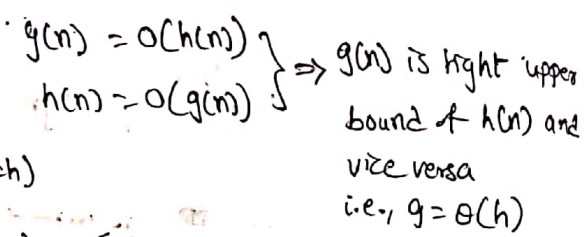 g(n) = O(h(n))
h(n) = O(g(n))
} ⇒ g(n) is tight upper
bound of h(n) and
vice versa
i.e., g = θ(h)
h)